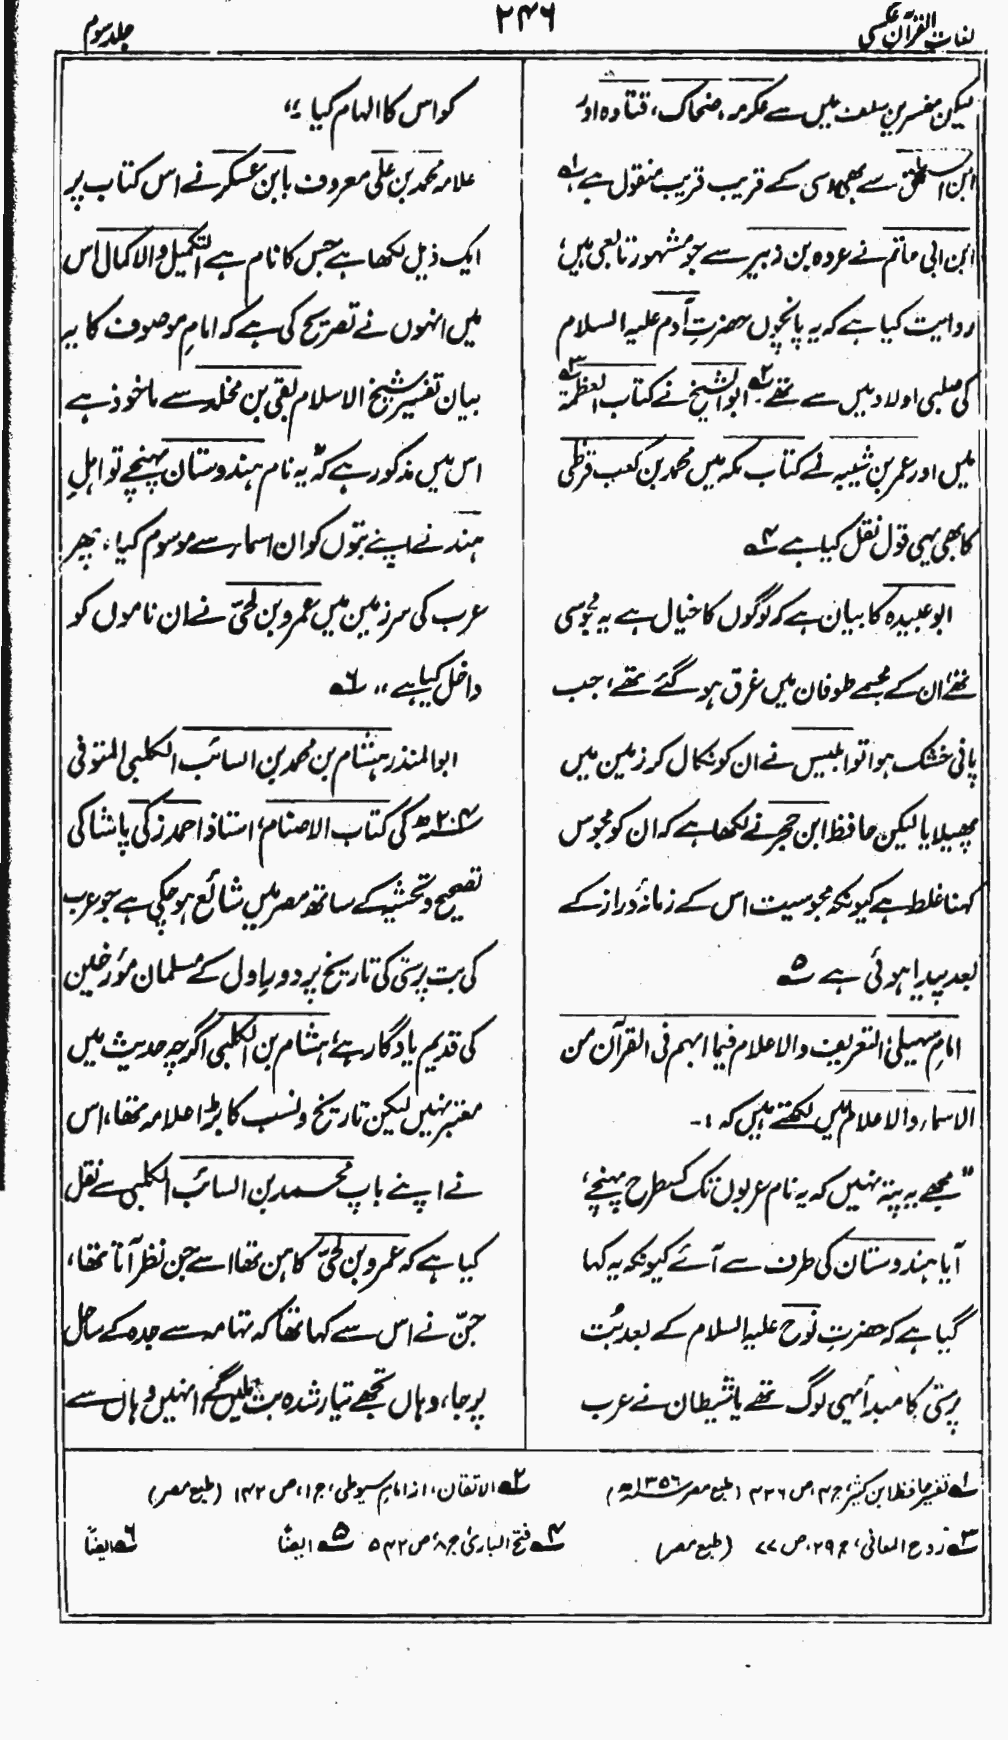 لغات القرآن عکسی
۲۴۶
جلد سوم
لیکن مفسرین سلف میں سے عکرمہ، ضحاک، قتادہ اور
ابن اسحٰق سے بھی اسی کے قریب قریب منقول ہے ۱؎
ابن ابی حاتم نے عروہ بن زبیر سے جو مشہور تابعی ہیں،
روایت کیا ہے کہ یہ پانچوں حضرتِ آدم علیہ السلام
کی صلبی اولاد میں سے تھے ۲؎ ابوالشیخ نے کتاب العظمۃ ۳؎
میں اور عمر بن شیبہ نے کتاب مکہ میں محمد بن کعب قرظی
کا بھی یہی قول نقل کیا ہے ۴؎
ابو عبیدہ کا بیان ہے کہ لوگوں کا خیال ہے یہ مجوسی
تھے، ان کے مجسمے طوفان میں غرق ہو گئے تھے، جب
پانی خشک ہوا تو ابلیس نے ان کو نکال کر زمین میں
پھیلا یا لیکن حافظ ابن حجر نے لکھا ہے کہ ان کو مجوس
کہنا غلط ہے کیونکہ مجوسیت اس کے زمانۂ دراز کے
بعد پیدا ہوئی ہے ۵؎
امام سہیلی، التعریف والاعلام فیما ابہم فی القرآن من
الاسماء والاعلام میں لکھتے ہیں کہ :-
” مجھے یہ پتہ نہیں کہ یہ نام عربوں تک کسطرح پہنچے،
آیا ہندوستان کی طرف سے آئے کیونکہ یہ کہا
گیا ہے کہ حضرتِ نوح علیہ السلام کے بعد بُت
پرستی کا مبدأ یہی لوگ تھے یا شیطان نے عرب
کو اس کا الہام کیا ۔“
علامہ محمد بن علی معروف بابن عسکر نے اس کتاب پر
ایک ذیل لکھا ہے جس کا نام ہے التکمیل والاکمال اس
میں انہوں نے تصریح کی ہے کہ امام موصوف کا یہ
بیان تفسیر شیخ الاسلام بقی بن مخلد سے ماخوذ ہے
اس میں مذکور ہے کہ ”یہ نام ہندوستان پہنچے تو اہلِ
ہند نے اپنے بتوں کو ان اسماء سے موسوم کیا، پھر
عرب کی سرزمین میں عمرو بن لحیّ نے ان ناموں کو
داخل کیا ہے“ ۶؎
ابوالمنذر ہشام بن محمد بن السائب الکلبی المتوفی
۲۰۴ھ کی کتاب الاصنام، استاذ احمد زکی پاشا کی
تصحیح و تحشیہ کے ساتھ مصر میں شائع ہو چکی ہے جو عرب
کی بت پرستی کی تاریخ پر دورِ اول کے مسلمان مؤرخین
کی قدیم یادگار ہے، ہشام بن الکلبی اگرچہ حدیث میں
معتبر نہیں لیکن تاریخ و نسب کا بڑا علامہ تھا، اس
نے اپنے باپ محمد بن السائب الکلبی سے نقل
کیا ہے کہ عمرو بن لحیّ کاہن تھا اسے جن نظر آتا تھا،
جنّ نے اس سے کہا تھا کہ تہامہ سے جدہ کے ساحل
پر جا، وہاں تجھے تیار شدہ بت ملیں گے انہیں وہاں سے
۱؎ تفسیر حافظ ابن کثیر، ج ۴، ص ۴۲۶ (طبع مصر ۱۳۵۶ھ) ۲؎ الاتقان، از امام سیوطی، ج ۱، ص ۱۴۲ (طبع مصر)
۳؎ روح المعانی، ج ۲۹، ص ۷۷ (طبع مصر) ۴؎ فتح الباری، ج ۸، ص ۵۴۲ ۵؎ ایضاً ۶؎ ایضاً